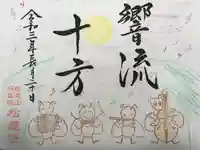 響流
十方
令和三年長月二十日